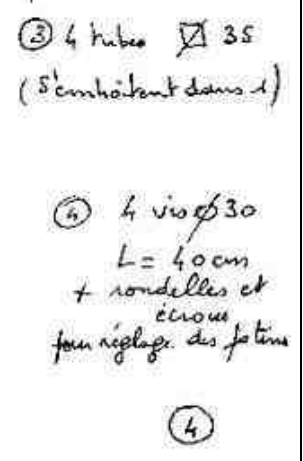 ③ 4 tubes ⌀ 35
(s'emboîtent dans 1)
④ 4 vis ⌀ 30
L = 40 cm
+ rondelles et
écrous
pour réglage des patins
④